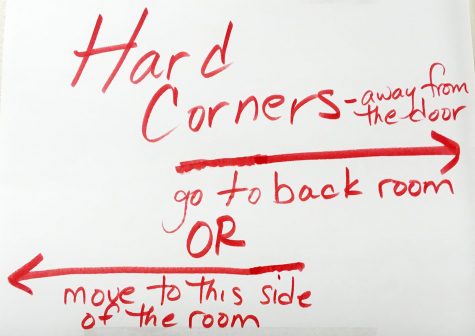 Hard
Corners - away from
the door
go to back room
OR
move to this side
of the room